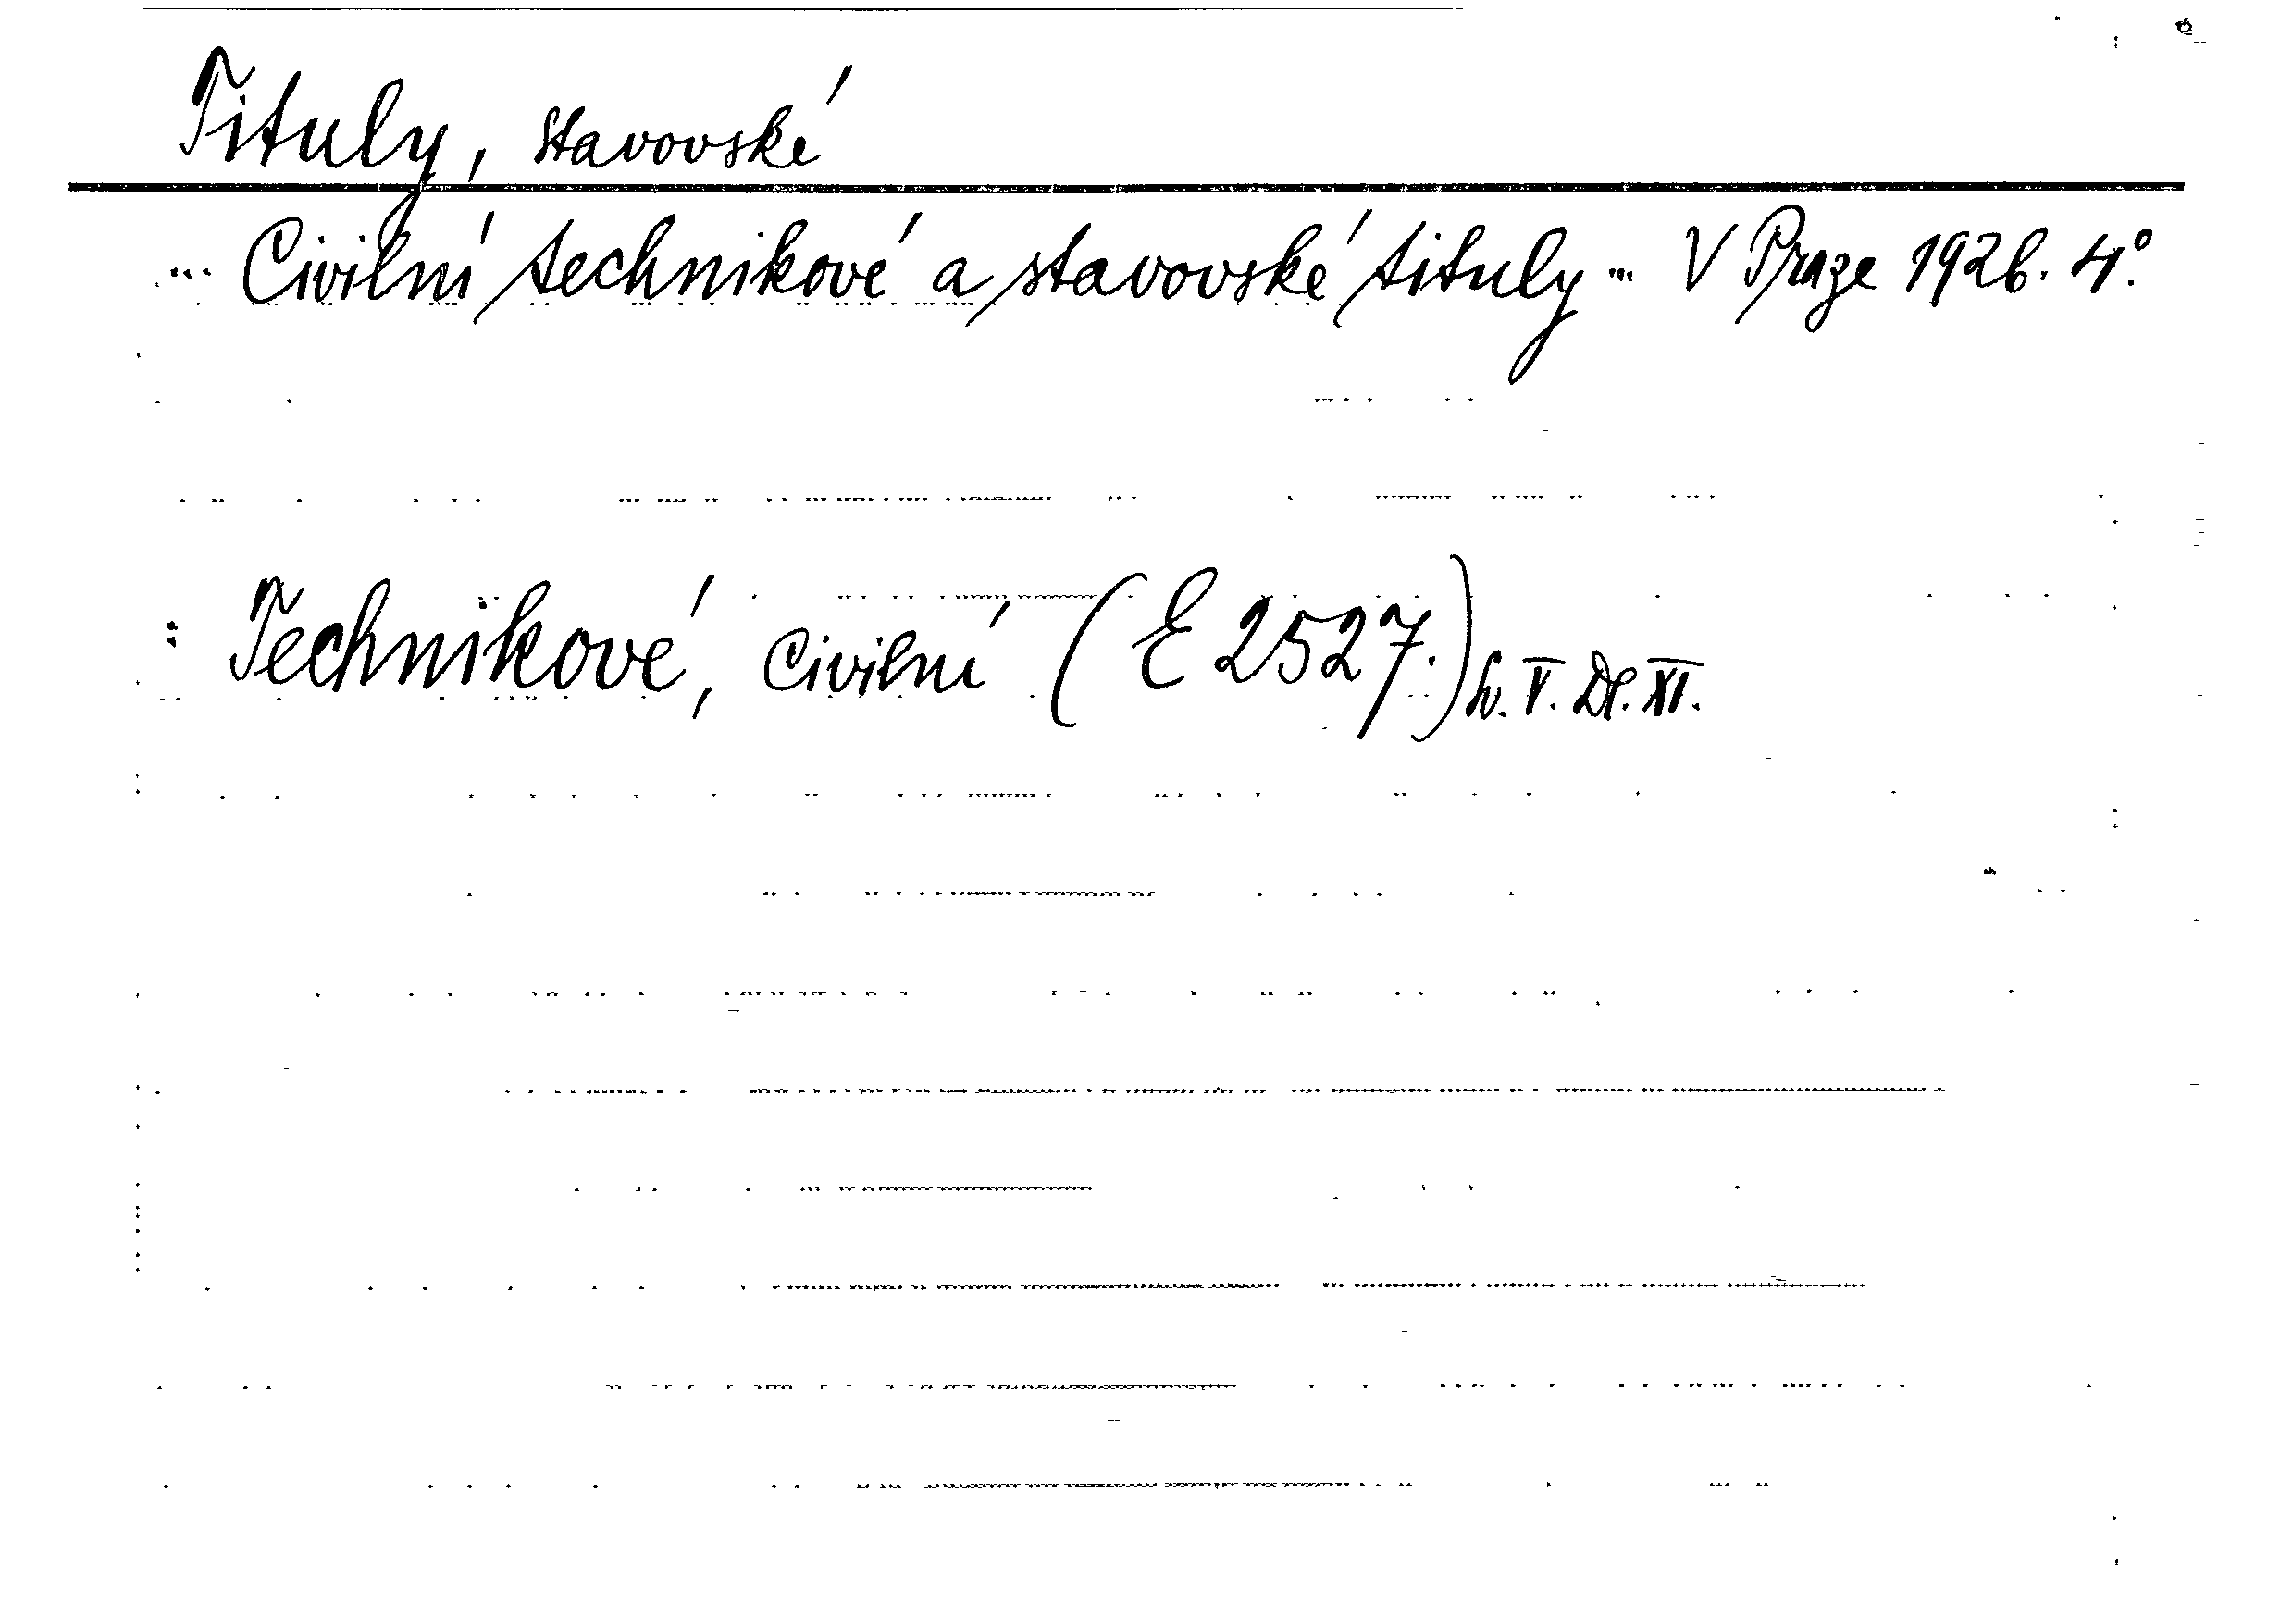 Tituly, stavovské
... Civilní technikové a stavovské tituly ... V Praze 1926. 4°.
: Technikové, civilní (E 2527.) Sv. V. Dř. XI.